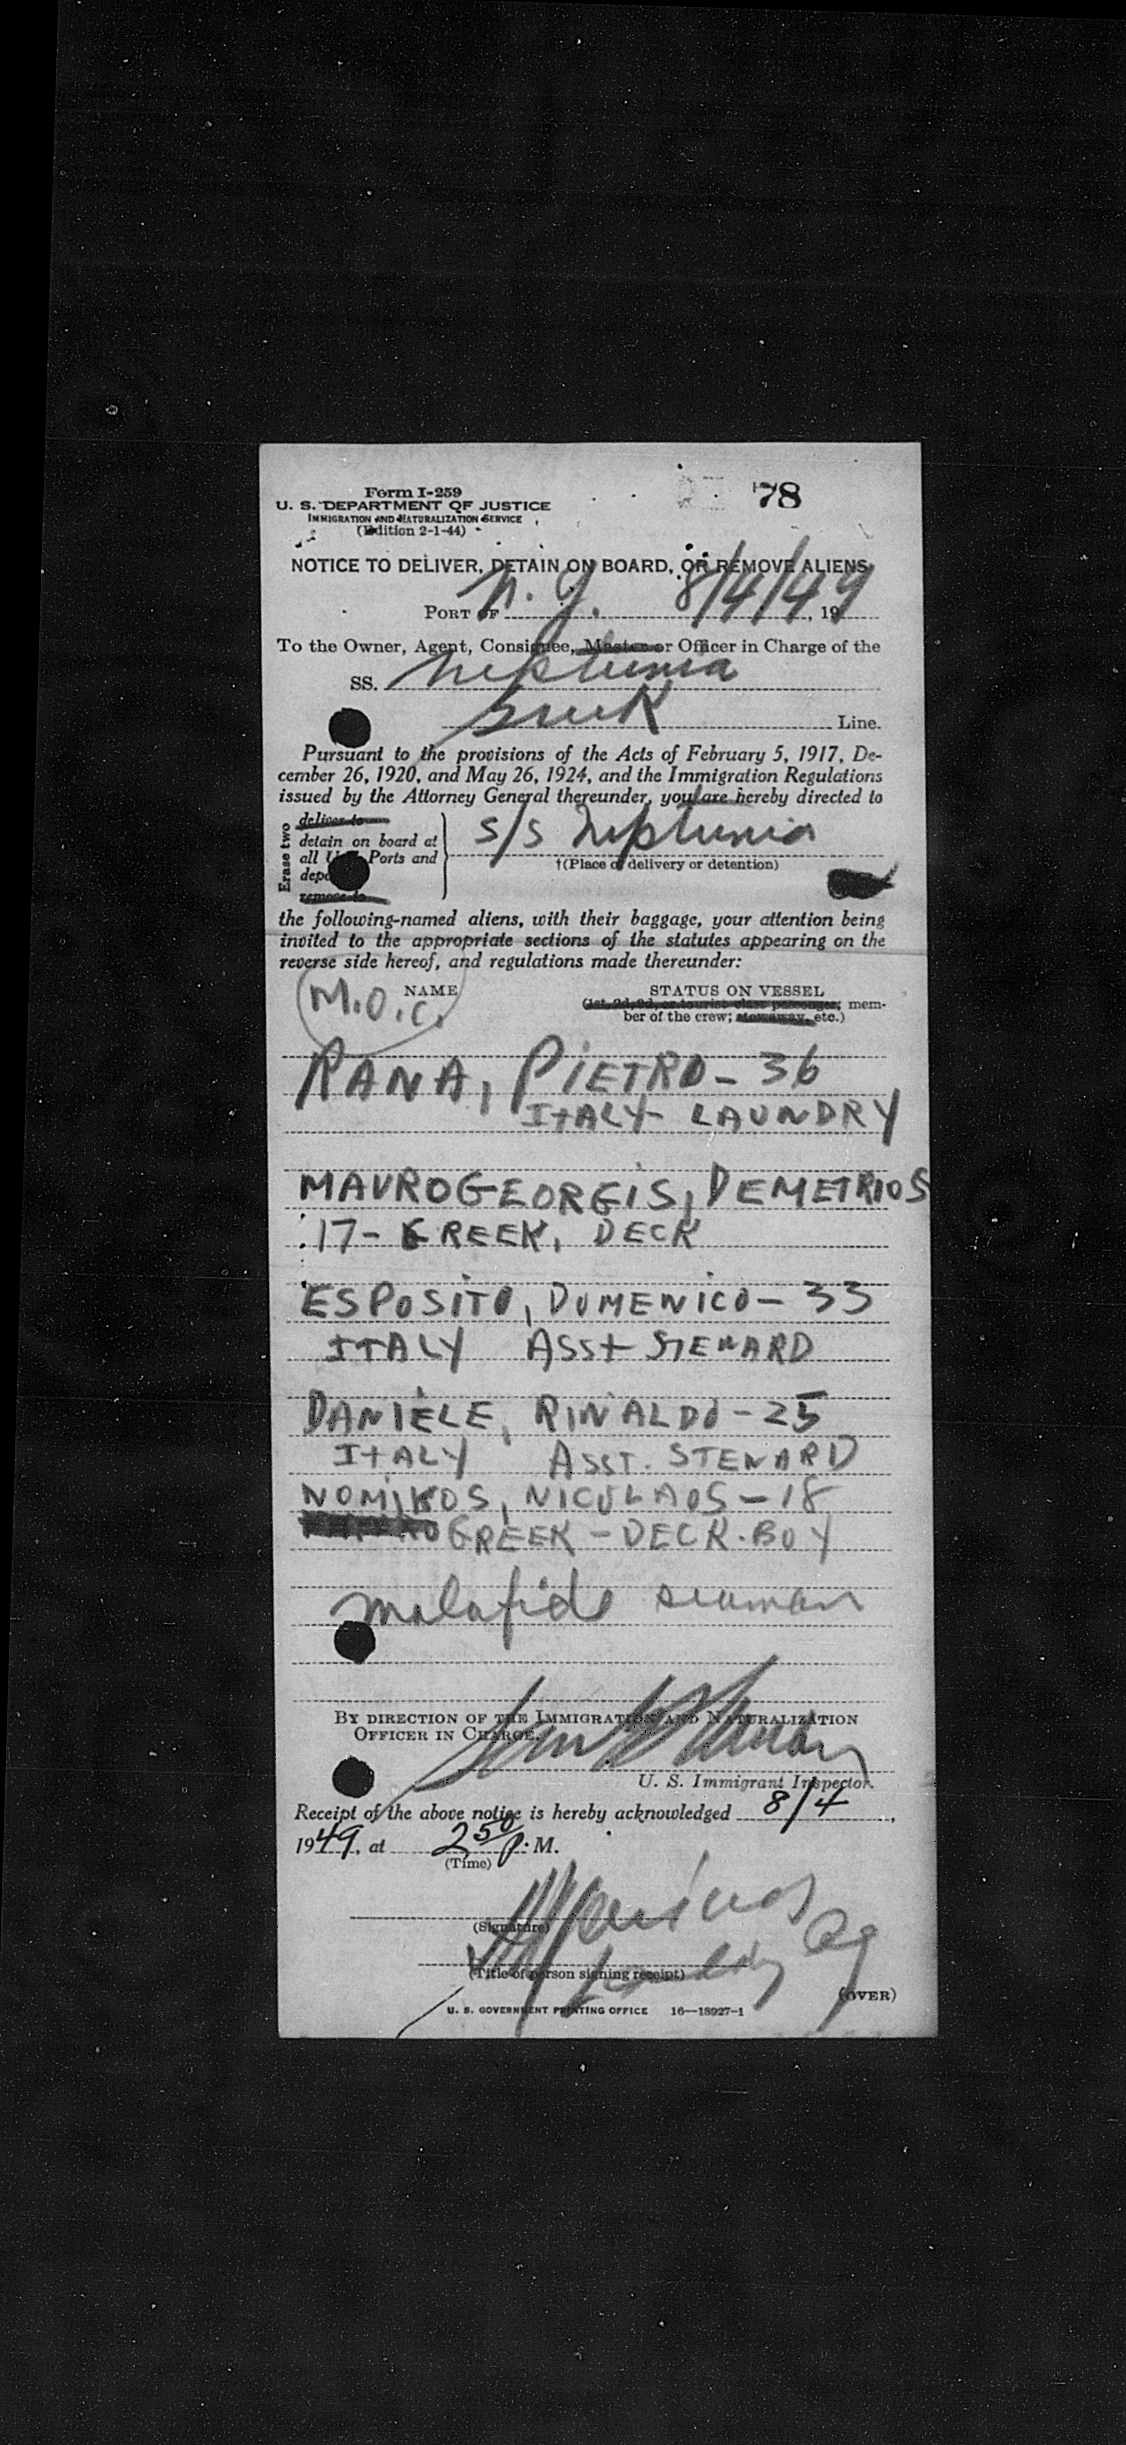 78
Form I-259
U. S. DEPARTMENT OF JUSTICE
IMMIGRATION AND NATURALIZATION SERVICE
(Edition 2-1-44)
NOTICE TO DELIVER, DETAIN ON BOARD, OR REMOVE ALIENS
PORT OF N. Y. 8/4/49, 19
To the Owner, Agent, Consignee, Master or Officer in Charge of the
SS. Neptunia
Greek Line.
Pursuant to the provisions of the Acts of February 5, 1917, De-
cember 26, 1920, and May 26, 1924, and the Immigration Regulations
issued by the Attorney General thereunder, you are hereby directed to
Erase two
deliver to
detain on board at
all Ports and
remove to
S/S Neptunia
†(Place of delivery or detention)
the following-named aliens, with their baggage, your attention being
invited to the appropriate sections of the statutes appearing on the
reverse side hereof, and regulations made thereunder:
M.O.C.
NAME STATUS ON VESSEL
(1st, 2d, 3d, or tourist class passenger; mem-
ber of the crew; stowaway, etc.)
RANA, PIETRO - 36
ITALY - LAUNDRY
MAVROGEORGIS, DEMETRIOS
17 - GREEK, DECK
ESPOSITO, DOMENICO - 33
ITALY ASST STEWARD
DANIELE, RINALDO - 25
ITALY ASST. STEWARD
NOMIKOS, NICOLAOS - 18
GREEK - DECK. BOY
malafide seaman
BY DIRECTION OF THE IMMIGRATION AND NATURALIZATION
OFFICER IN CHARGE.
U. S. Immigrant Inspector.
Receipt of the above notice is hereby acknowledged 8/4,
1949, at 2 50 P. M.
(Time)
(Signature)
(Title of person signing receipt)
(OVER)
U. S. GOVERNMENT PRINTING OFFICE 16—18927-1